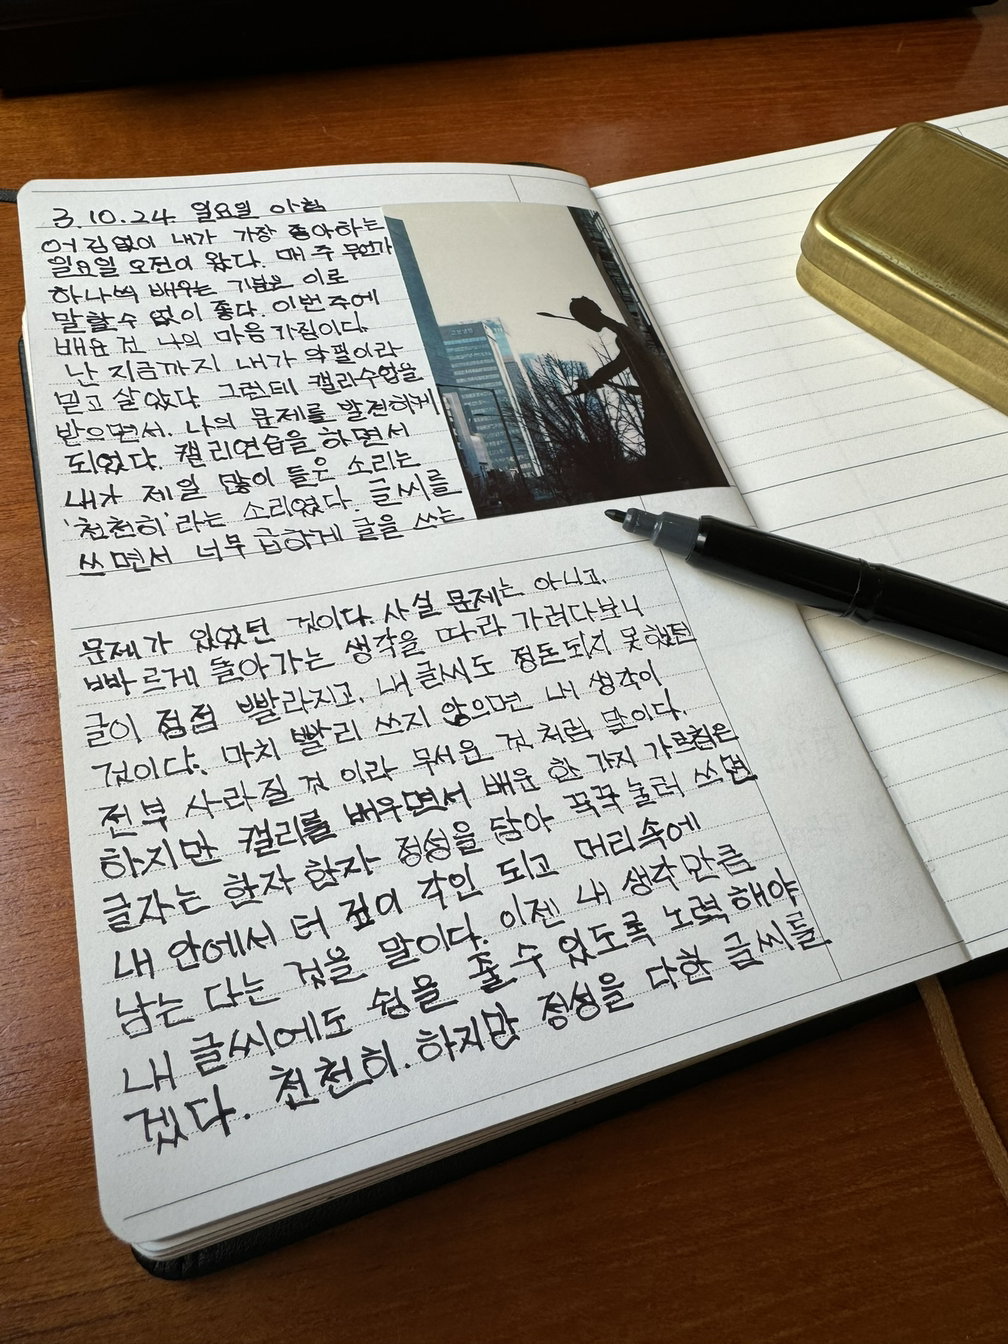 3.10.24 일요일 아침
어김없이 내가 가장 좋아하는
일요일 오전이 왔다. 매 주 무언가
하나씩 배우는 기분은 이로
말할 수 없이 좋다. 이번 주에
배운 건 나의 마음가짐이다.
난 지금까지 내가 악필이라
믿고 살았다. 그런데 캘리수업을
받으면서. 나의 문제를 발견하게
되었다. 캘리연습을 하면서
내가 제일 많이 들은 소리는
'천천히'라는 소리였다. 글씨를
쓰면서 너무 급하게 글을 쓰는
문제가 있었던 것이다. 사실 문제는 아니고.
빠르게 돌아가는 생각을 따라 가려다보니
글이 점점 빨라지고. 내 글씨도 정돈되지 못했던
것이다. 마치 빨리 쓰지 않으면 내 생각이
전부 사라질 것 이라 무서운 것 처럼 말이다.
하지만 캘리를 배우면서 배운 한 가지 가르침은
글자는 한자 한자 정성을 담아 꾹꾹 눌러 쓰면
내 안에서 더 깊이 각인 되고 머리속에
남는 다는 것을 말이다. 이젠 내 생각만큼
내 글씨에도 쉼을 줄 수 있도록 노력해야
겠다. 천천히. 하지만 정성을 다한 글씨를